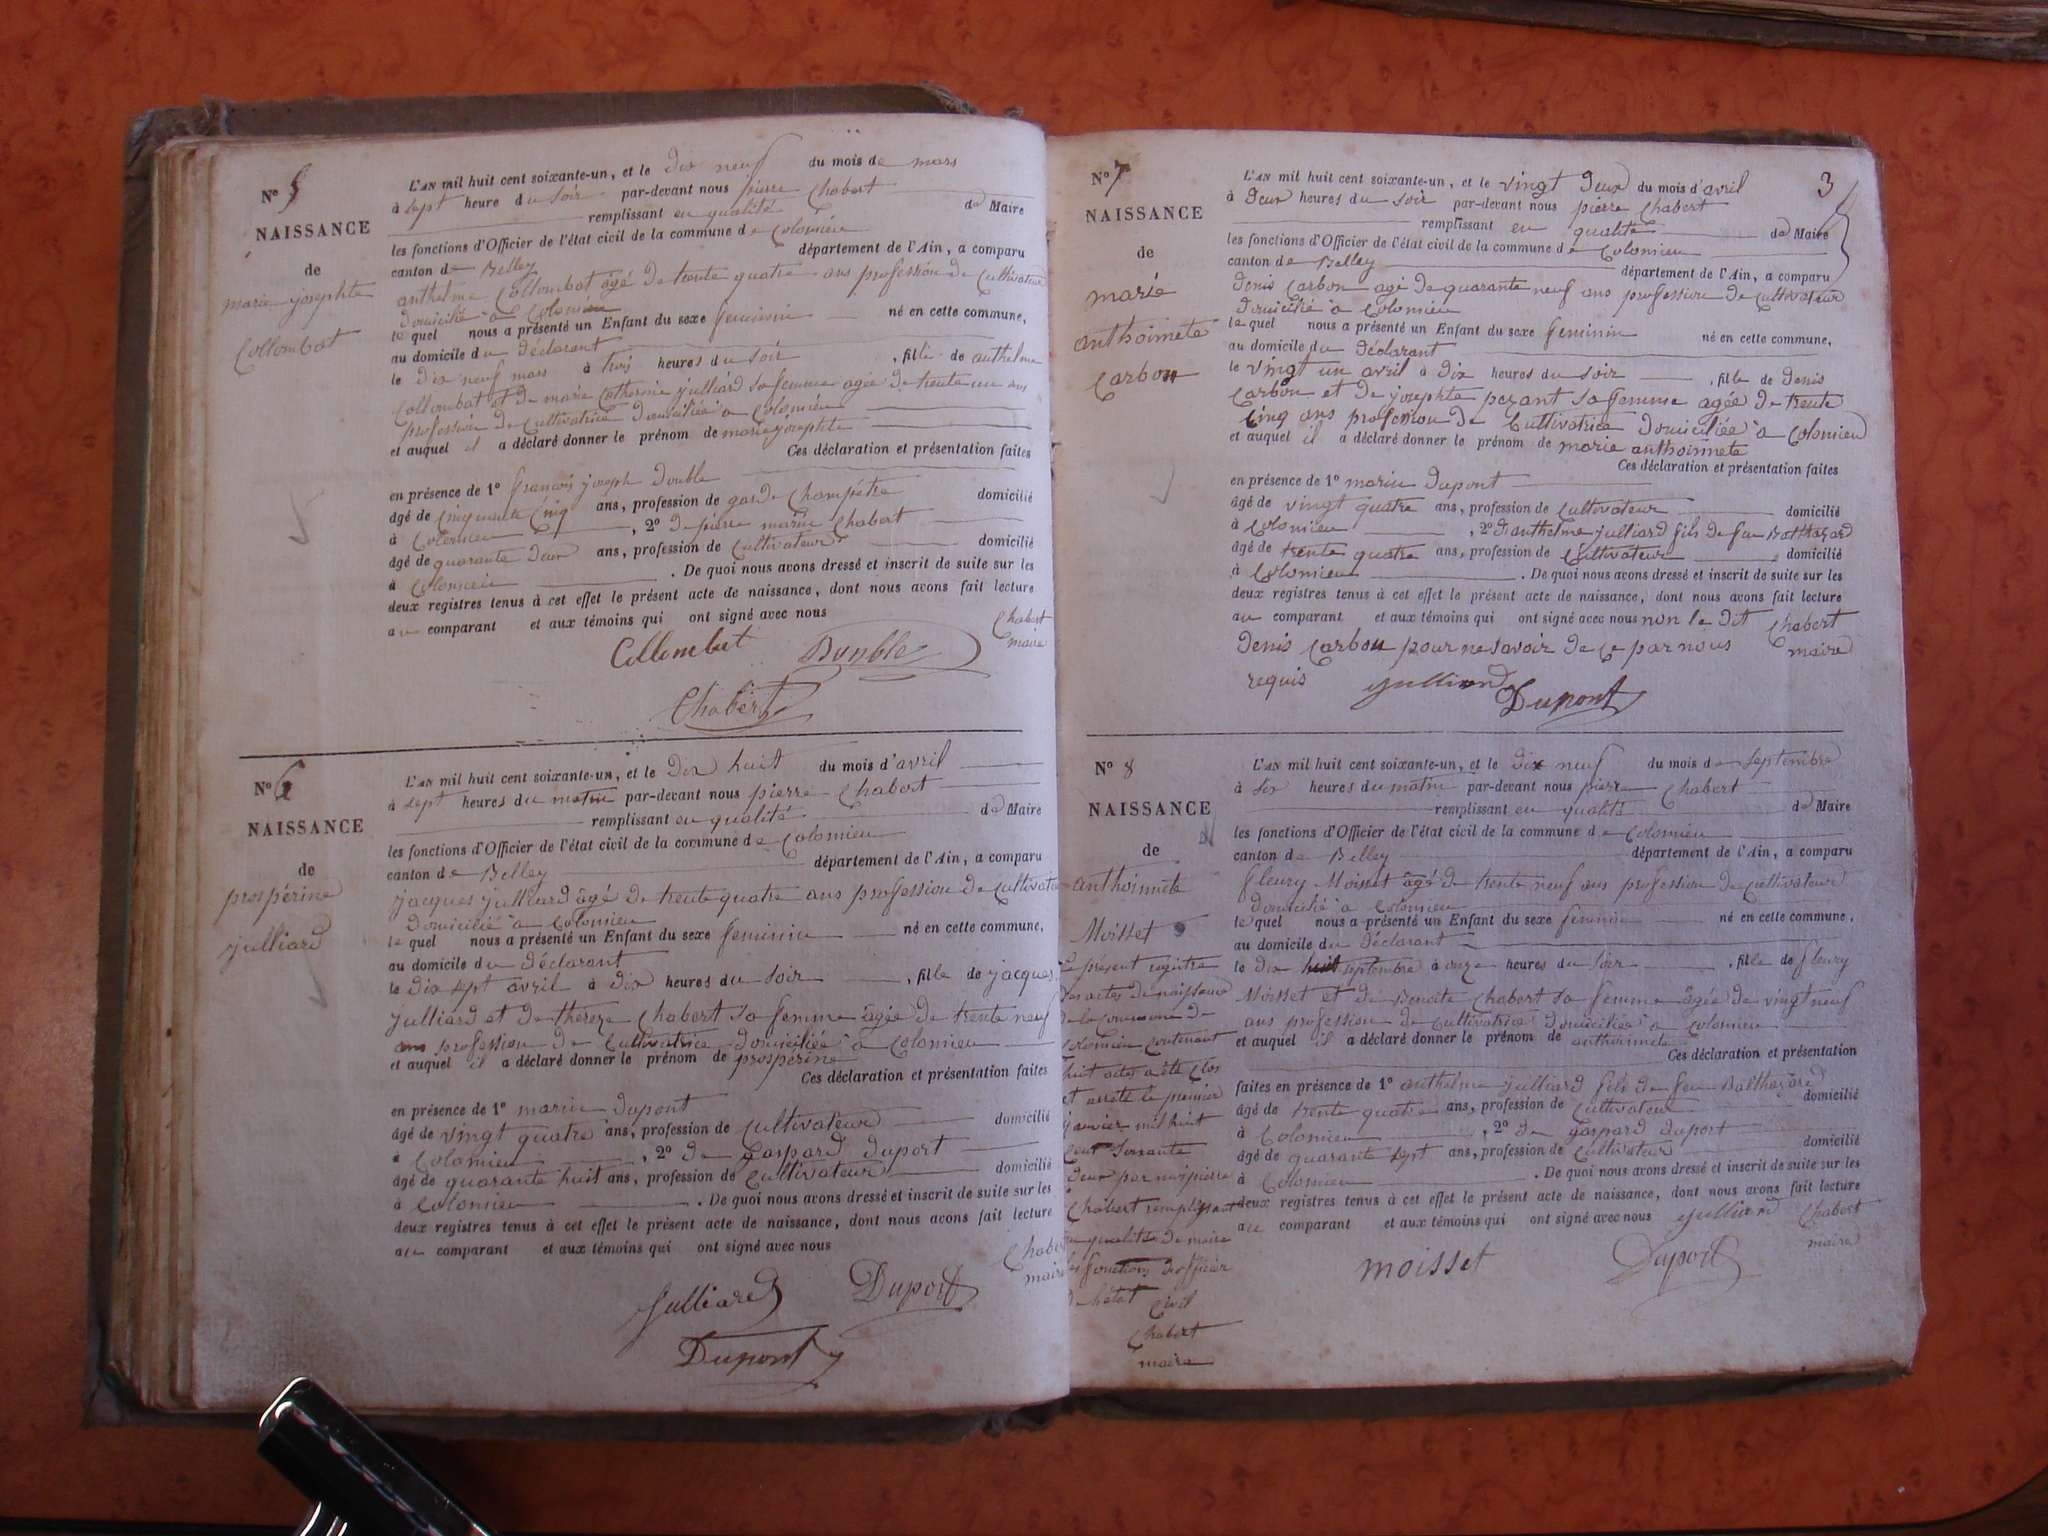 N° 5
NAISSANCE
de
marie josephte
Collombat
L'AN mil huit cent soixante-un, et le dix neuf du mois de mars
à sept heure du soir par-devant nous pierre Chabert
remplissant en qualité de Maire
les fonctions d'Officier de l'état civil de la commune de Colomieu
canton de Belley département de l'Ain, a comparu
anthelme Collombat âgé de trente quatre ans profession de Cultivateur
domicilié à Colomieu
le quel nous a présenté un Enfant du sexe feminin né en cette commune,
au domicile du déclarant
le dix neuf mars à trois heures du soir , fille de anthelme
Collombat et de marie Catherine julliard sa femme agée de trente un ans
profession de Cultivatrice domiciliée à Colomieu
et auquel il a déclaré donner le prénom de marie josephte
Ces déclaration et présentation faites
en présence de 1° françois joseph Double
âgé de cinquante cinq ans, profession de garde Champétre domicilié
à Colomieu , 2° de pierre marin Chabert
âgé de quarante deux ans, profession de Cultivateur domicilié
à Colomieu . De quoi nous avons dressé et inscrit de suite sur les
deux registres tenus à cet effet le présent acte de naissance, dont nous avons fait lecture
au comparant et aux témoins qui ont signé avec nous
Chabert
maire
Collombat Double
Chabert
N° 6
NAISSANCE
de
prospérine
julliard
L'AN mil huit cent soixante-un, et le dix huit du mois d'avril
à sept heures du matin par-devant nous pierre Chabert
remplissant en qualité de Maire
les fonctions d'Officier de l'état civil de la commune de Colomieu
canton de Belley département de l'Ain, a comparu
jacques julliard âgé de trente quatre ans profession de Cultivateur
domicilié à Colomieu
le quel nous a présenté un Enfant du sexe feminin né en cette commune,
au domicile du déclarant
le dix sept avril à dix heures du soir , fille de jacques
julliard et de thereze Chabert sa femme âgée de trente neuf
ans profession de Cultivatrice domiciliée à Colomieu
et auquel il a déclaré donner le prénom de prospérine
Ces déclaration et présentation faites
en présence de 1° marin Dupont
âgé de vingt quatre ans, profession de Cultivateur domicilié
à Colomieu , 2° de gaspard duport
âgé de quarante huit ans, profession de Cultivateur domicilié
à Colomieu . De quoi nous avons dressé et inscrit de suite sur les
deux registres tenus à cet effet le présent acte de naissance, dont nous avons fait lecture
au comparant et aux témoins qui ont signé avec nous
Chabert
maire
Julliard Duport
Dupont
3
N° 7
NAISSANCE
de
marie
anthoinnete
Carbon
L'AN mil huit cent soixante-un, et le vingt deux du mois d'avril
à deux heures du soir par-devant nous pierre Chabert
remplissant en qualité de Maire
les fonctions d'Officier de l'état civil de la commune de Colomieu
canton de Belley département de l'Ain, a comparu
denis Carbon agé de quarante neuf ans profession de Cultivateur
domicilié à Colomieu
le quel nous a présenté un Enfant du sexe feminin né en cette commune,
au domicile du déclarant
le vingt un avril à dix heures du soir , fille de denis
Carbon et de josephte pezant sa femme agée de trente
Cinq ans profession de Cultivatrice domiciliée à Colomieu
et auquel il a déclaré donner le prénom de marie anthoinnete
Ces déclaration et présentation faites
en présence de 1° marin dupont
âgé de vingt quatre ans, profession de Cultivateur domicilié
à Colomieu , 2° d'anthelme julliard fils de feu Balthazard
âgé de trente quatre ans, profession de Cultivateur domicilié
à Colomieu . De quoi nous avons dressé et inscrit de suite sur les
deux registres tenus à cet effet le présent acte de naissance, dont nous avons fait lecture
au comparant et aux témoins qui ont signé avec nous non le dit Chabert
denis Carbon pour ne savoir de ce par nous maire
requis julliard Dupont
N° 8
NAISSANCE
de
anthoinnete
Moisset
Le présent registre
des actes de naissance
de la commune de
Colomieu contenant
huit actes a été clos
et arrêté le premier
janvier mil huit
cent soixante
deux par nous pierre
Chabert remplissant
en qualité de maire
les fonctions d'officier
de l'état civil
Chabert
maire
L'AN mil huit cent soixante-un, et le dix neuf du mois de septembre
à six heures du matin par-devant nous pierre Chabert
remplissant en qualité de Maire
les fonctions d'Officier de l'état civil de la commune de Colomieu
canton de Belley département de l'Ain, a comparu
fleury Moisset âgé de trente neuf ans profession de cultivateur
domicilié à Colomieu
le quel nous a présenté un Enfant du sexe feminin né en cette commune,
au domicile du déclarant
le dix huit septembre à onze heures du soir , fille de fleury
Moisset et de Benoite Chabert sa femme âgée de vingt neuf
ans profession de cultivatrice domiciliée à Colomieu
et auquel il a déclaré donner le prénom de anthoinnete
Ces déclaration et présentation
faites en présence de 1° anthelme julliard fils de feu Balthazard
âgé de trente quatre ans, profession de Cultivateur domicilié
à Colomieu , 2° de gaspard duport
âgé de quarante sept ans, profession de Cultivateur domicilié
à Colomieu . De quoi nous avons dressé et inscrit de suite sur les
deux registres tenus à cet effet le présent acte de naissance, dont nous avons fait lecture
au comparant et aux témoins qui ont signé avec nous julliard Chabert
maire
moisset Duport